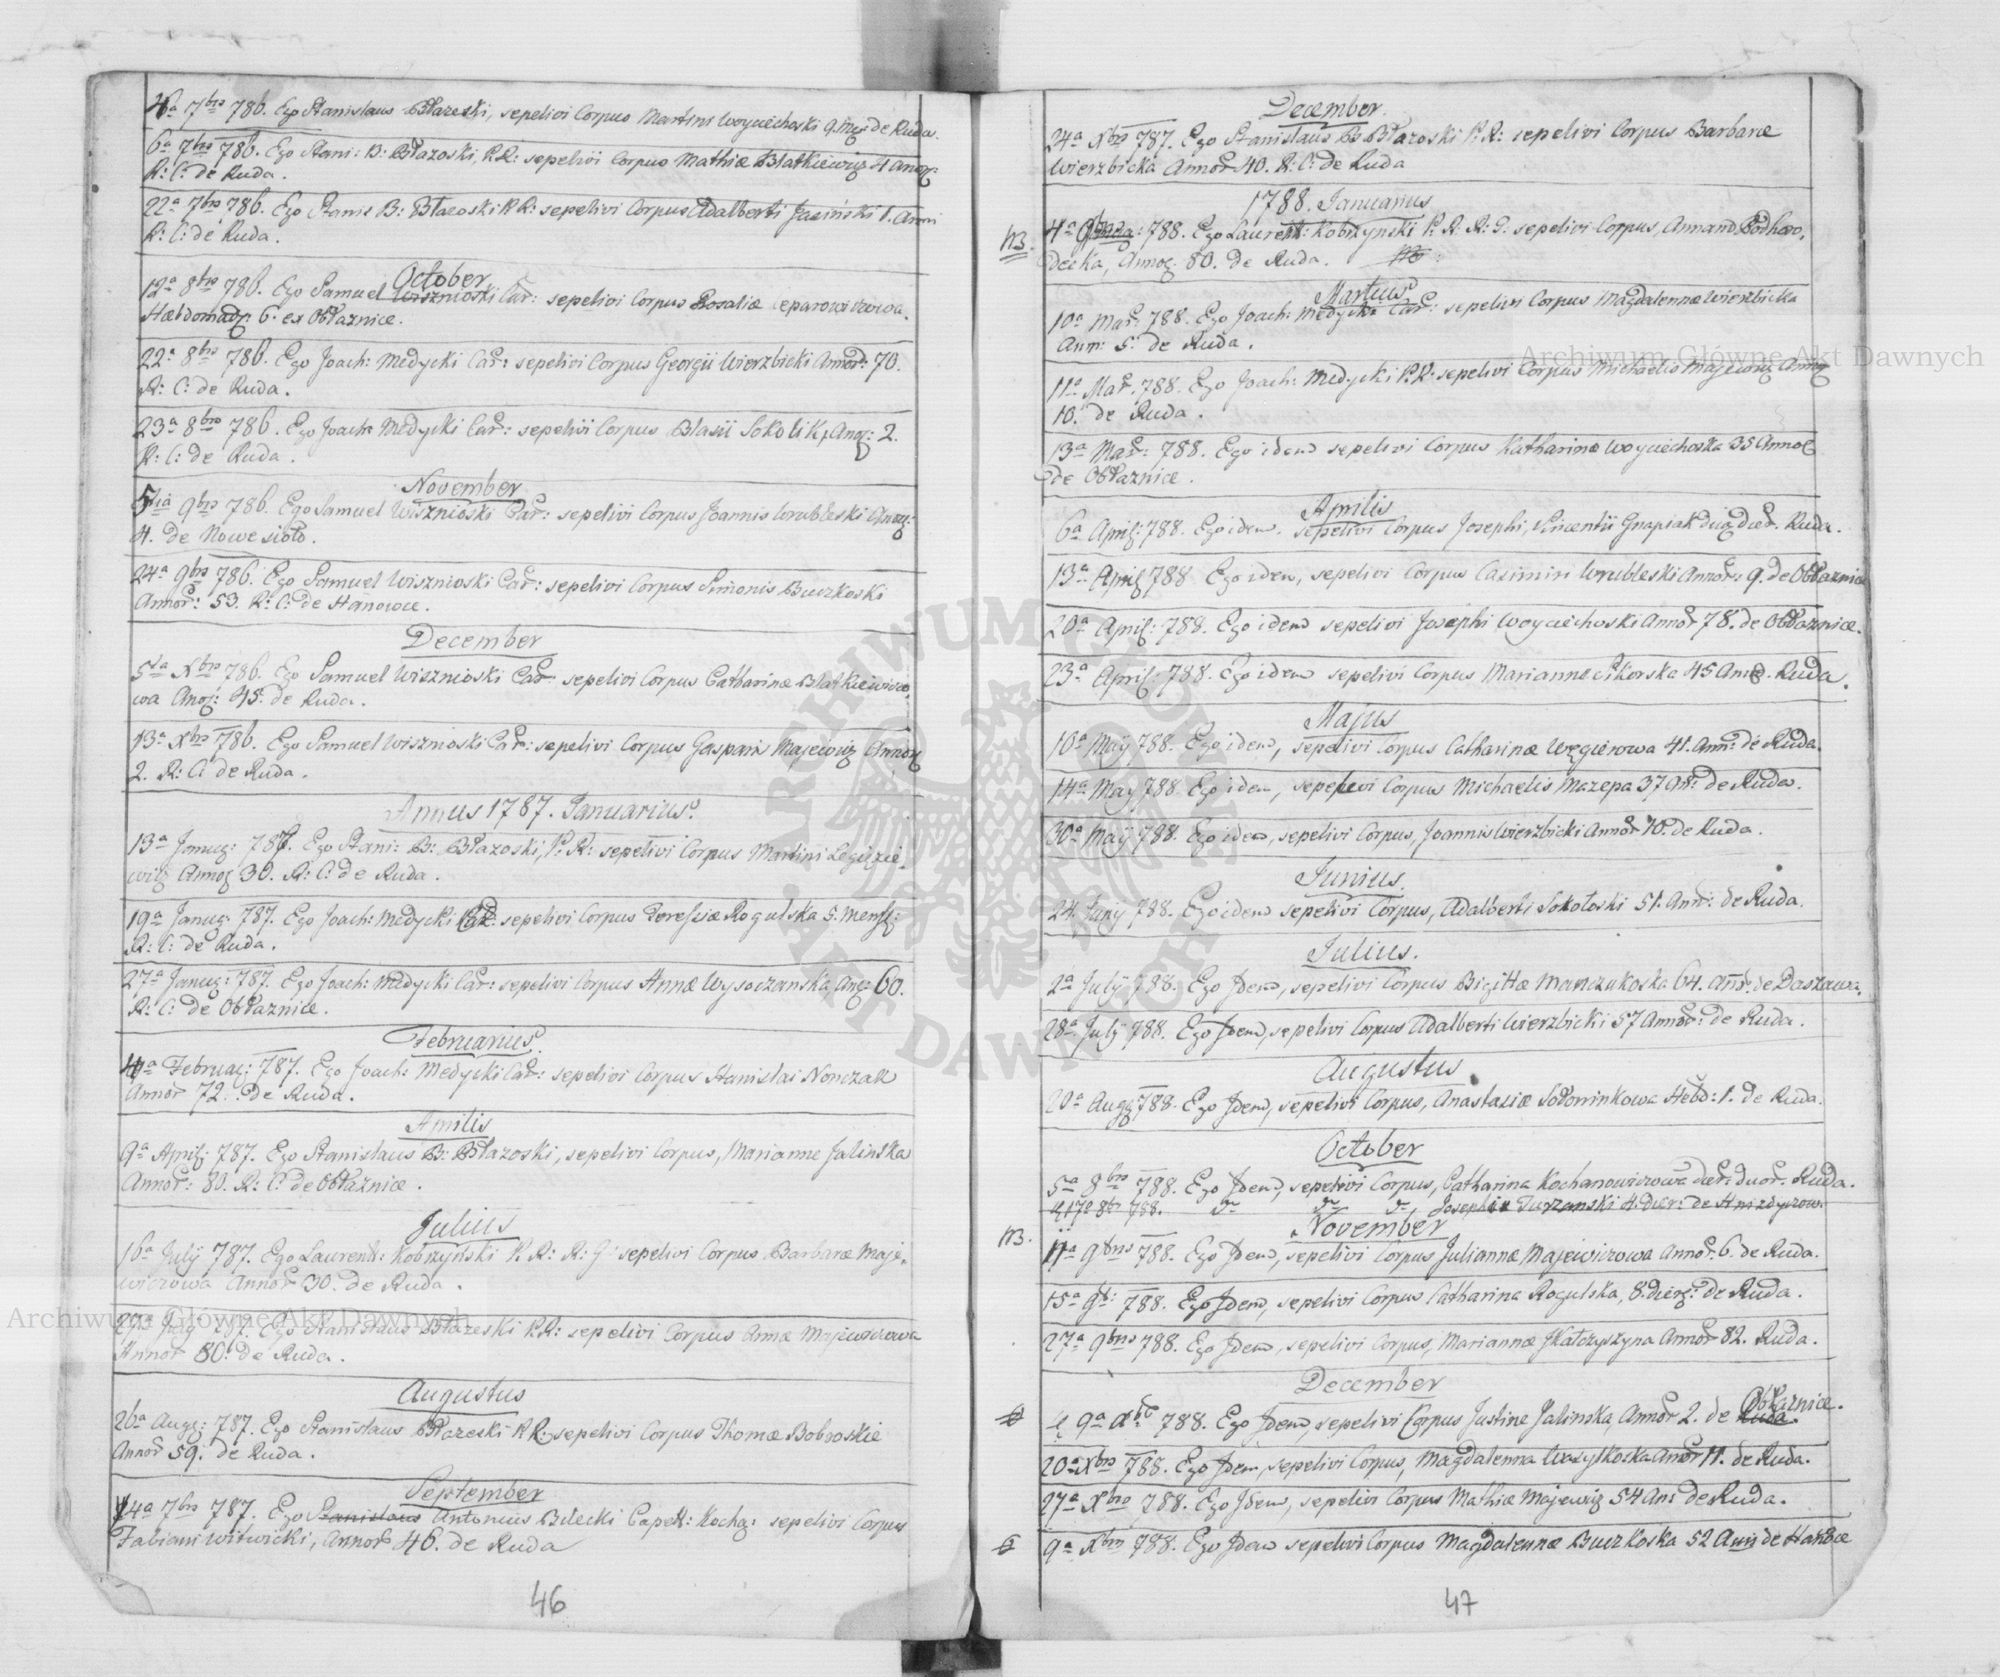 4a 7bris 786. Ego Stanislaus Błazeski, sepelivi Corpus Martini Woyciechoski 9. de Ruda.
6a 7bris 786. Ego Stani: B: Błazoski, P. R: sepelivi Corpus Mathiæ Blatkiewicz 4
R: C: de Ruda.
22a 7bris 786. Ego Stanis B: Błazoski P. R: sepelivi Corpus Adalberti Jasiński 1. Anni
R: C: de Ruda.
October
12a 8bris 786. Ego Samuel Wisznioski Car: sepelivi Corpus Rosaliæ
Hebdomad: 6. ex Obłaznice.
22a 8bris 786. Ego Joach: Medycki Car: sepelivi Corpus Georgii Wierzbicki Annor: 70.
R: C: de Ruda.
23a 8bris 786. Ego Joach: Medycki Car: sepelivi Corpus Blasii Sokolik, 2.
R: C: de Ruda.
November
5ta 9bris 786. Ego Samuel Wisznioski Car: sepelivi Corpus Joannis Wrubleski
4. de Nowesioło.
24a 9bris 786. Ego Samuel Wisznioski Car: sepelivi Corpus Simonis Buczkoski
Annor: 53. R: C: de Hanowce.
December
5ta Xbris 786. Ego Samuel Wisznioski Car: sepelivi Corpus Catharinæ Blatkiewiczo,
wa 45. de Ruda.
13a Xbris 786. Ego Samuel Wisznioski Car: sepelivi Corpus Gasparis Majewicz
2. R: C: de Ruda.
Annus 1787. Januarius.
13a 787. Ego Stani: B: Błazoski, P. R: sepelivi Corpus Martini
30. R: C: de Ruda.
19a 787. Ego Joach: Medycki Car: sepelivi Corpus Teressiæ Rogulska 5.
R: C: de Ruda.
27a 787. Ego Joach: Medycki Car: sepelivi Corpus Annæ Wysoczanska 60.
R: C: de Obłaznice.
Februarius.
4a 787. Ego Joach: Medycki Car: sepelivi Corpus Stanislai Nonczak
Annor 72. de Ruda.
Aprilis
9a 787. Ego Stanislaus B: Błazoski, sepelivi Corpus, Marianne Jalinska
Annor: 80. R: C: de Obłaznice.
Julius
16a July 787. Ego Laurent: Kobrzyński P. R: R: G: sepelivi Corpus Barbaræ Maje,
wiczowa Annor 30. de Ruda.
July 787. Ego Stanislaus Błazeski P. R: sepelivi Corpus Annæ Majewiczowa
Annor 80. de Ruda.
Augustus
26a 787. Ego Stanislaus Błazeski P. R: sepelivi Corpus Thomæ Bobroskie
Annor 59. de Ruda.
September
14a 7bris 787. Ego Stanislaus Antonius Bilecki sepelivi Corpus
Fabiani Witwicki, Annor 46. de Ruda
46
December.
24a Xbris 787. Ego Stanislaus B. Błazoski P. R: sepelivi Corpus Barbaræ
Wierzbicka Annor 40. R: C: de Ruda
1788. Januarius
NB. 4a 788. Ego Laurent: Kobrzynski P. R. R: G: sepelivi Corpus,
80. de Ruda.
Martius
10a Mar: 788. Ego Joach: Medycki Car: sepelivi Corpus Magdalennæ Wierzbicka
Ann: 5. de Ruda.
11a Mar: 788. Ego Joach: Medycki P. R: sepelivi Corpus Michaelis Majewicz
10. de Ruda.
13a Mar: 788. Ego idem sepelivi Corpus Katharinæ Woyciechoska 35
de Obłaznice.
Aprilis
6a 788. Ego idem, sepelivi Corpus Josephi, Vincentii Ruda.
13a 788 Ego idem, sepelivi Corpus Casimiri Wrubleski Annor: 9. de Obłaznice
20a 788. Ego idem sepelivi Josephi Woyciechoski Annor 78. de Obłaznice.
23a 788. Ego idem sepelivi Corpus Marianne Sikorska 45 Ruda.
Majus
10a May 788. Ego idem, sepelivi Corpus Catharinæ Węgierowa 41. Ann: de Ruda.
14a May 788. Ego idem, sepelivi Corpus Michaelis Mazepa 37 de Ruda.
30a May 788. Ego idem, sepelivi Corpus, Joannis Wierzbicki Annor 70. de Ruda.
Junius.
24. Juny 788. Ego idem sepelivi Corpus, Adalberti Sokołoski 51. Ann: de Ruda.
Julius.
2a July 788. Ego Idem, sepelivi Corpus Bigittæ Manczukoska 64. de Daszawa.
28a July 788. Ego Idem, sepelivi Corpus Adalberti Wierzbicki 57 Annor: de Ruda.
Augustus
20a 788. Ego Idem, sepelivi Corpus, Anastasiæ Sołominkowa Hebd: 1. de Ruda.
October
5a 8bris 788. Ego Idem, sepelivi Corpus, Catharina Kochanowiczowa Ruda.
17a 8bris 788. Josephi
November
NB. 11a 9bris 788. Ego Idem, sepelivi Corpus Juliannæ Majewiczowa Annor. 6. de Ruda.
15a 788. Ego Idem, sepelivi Corpus Catharina Rogulska, 8. de Ruda.
27a 9bris 788. Ego Idem, sepelivi Corpus, Mariannæ Annor 82. Ruda.
December
9a 788. Ego Idem, sepelivi Corpus Justine Jalinska, Annor 2. de Obłaznice.
20a Xbris 788. Ego Idem, sepelivi Corpus, Magdalenna Wasylkoska Annor 11. de Ruda.
27a Xbris 788. Ego Idem, sepelivi Corpus Mathiæ Majewicz 54 de Ruda.
9a Xbris 788. Ego Idem sepelivi Corpus Magdalennæ Buczkoska 52 de
47
Archiwum Główne Akt Dawnych
Archiwum Główne Akt Dawnych
ARCHIWUM GŁÓWNE AKT DAWNYCH